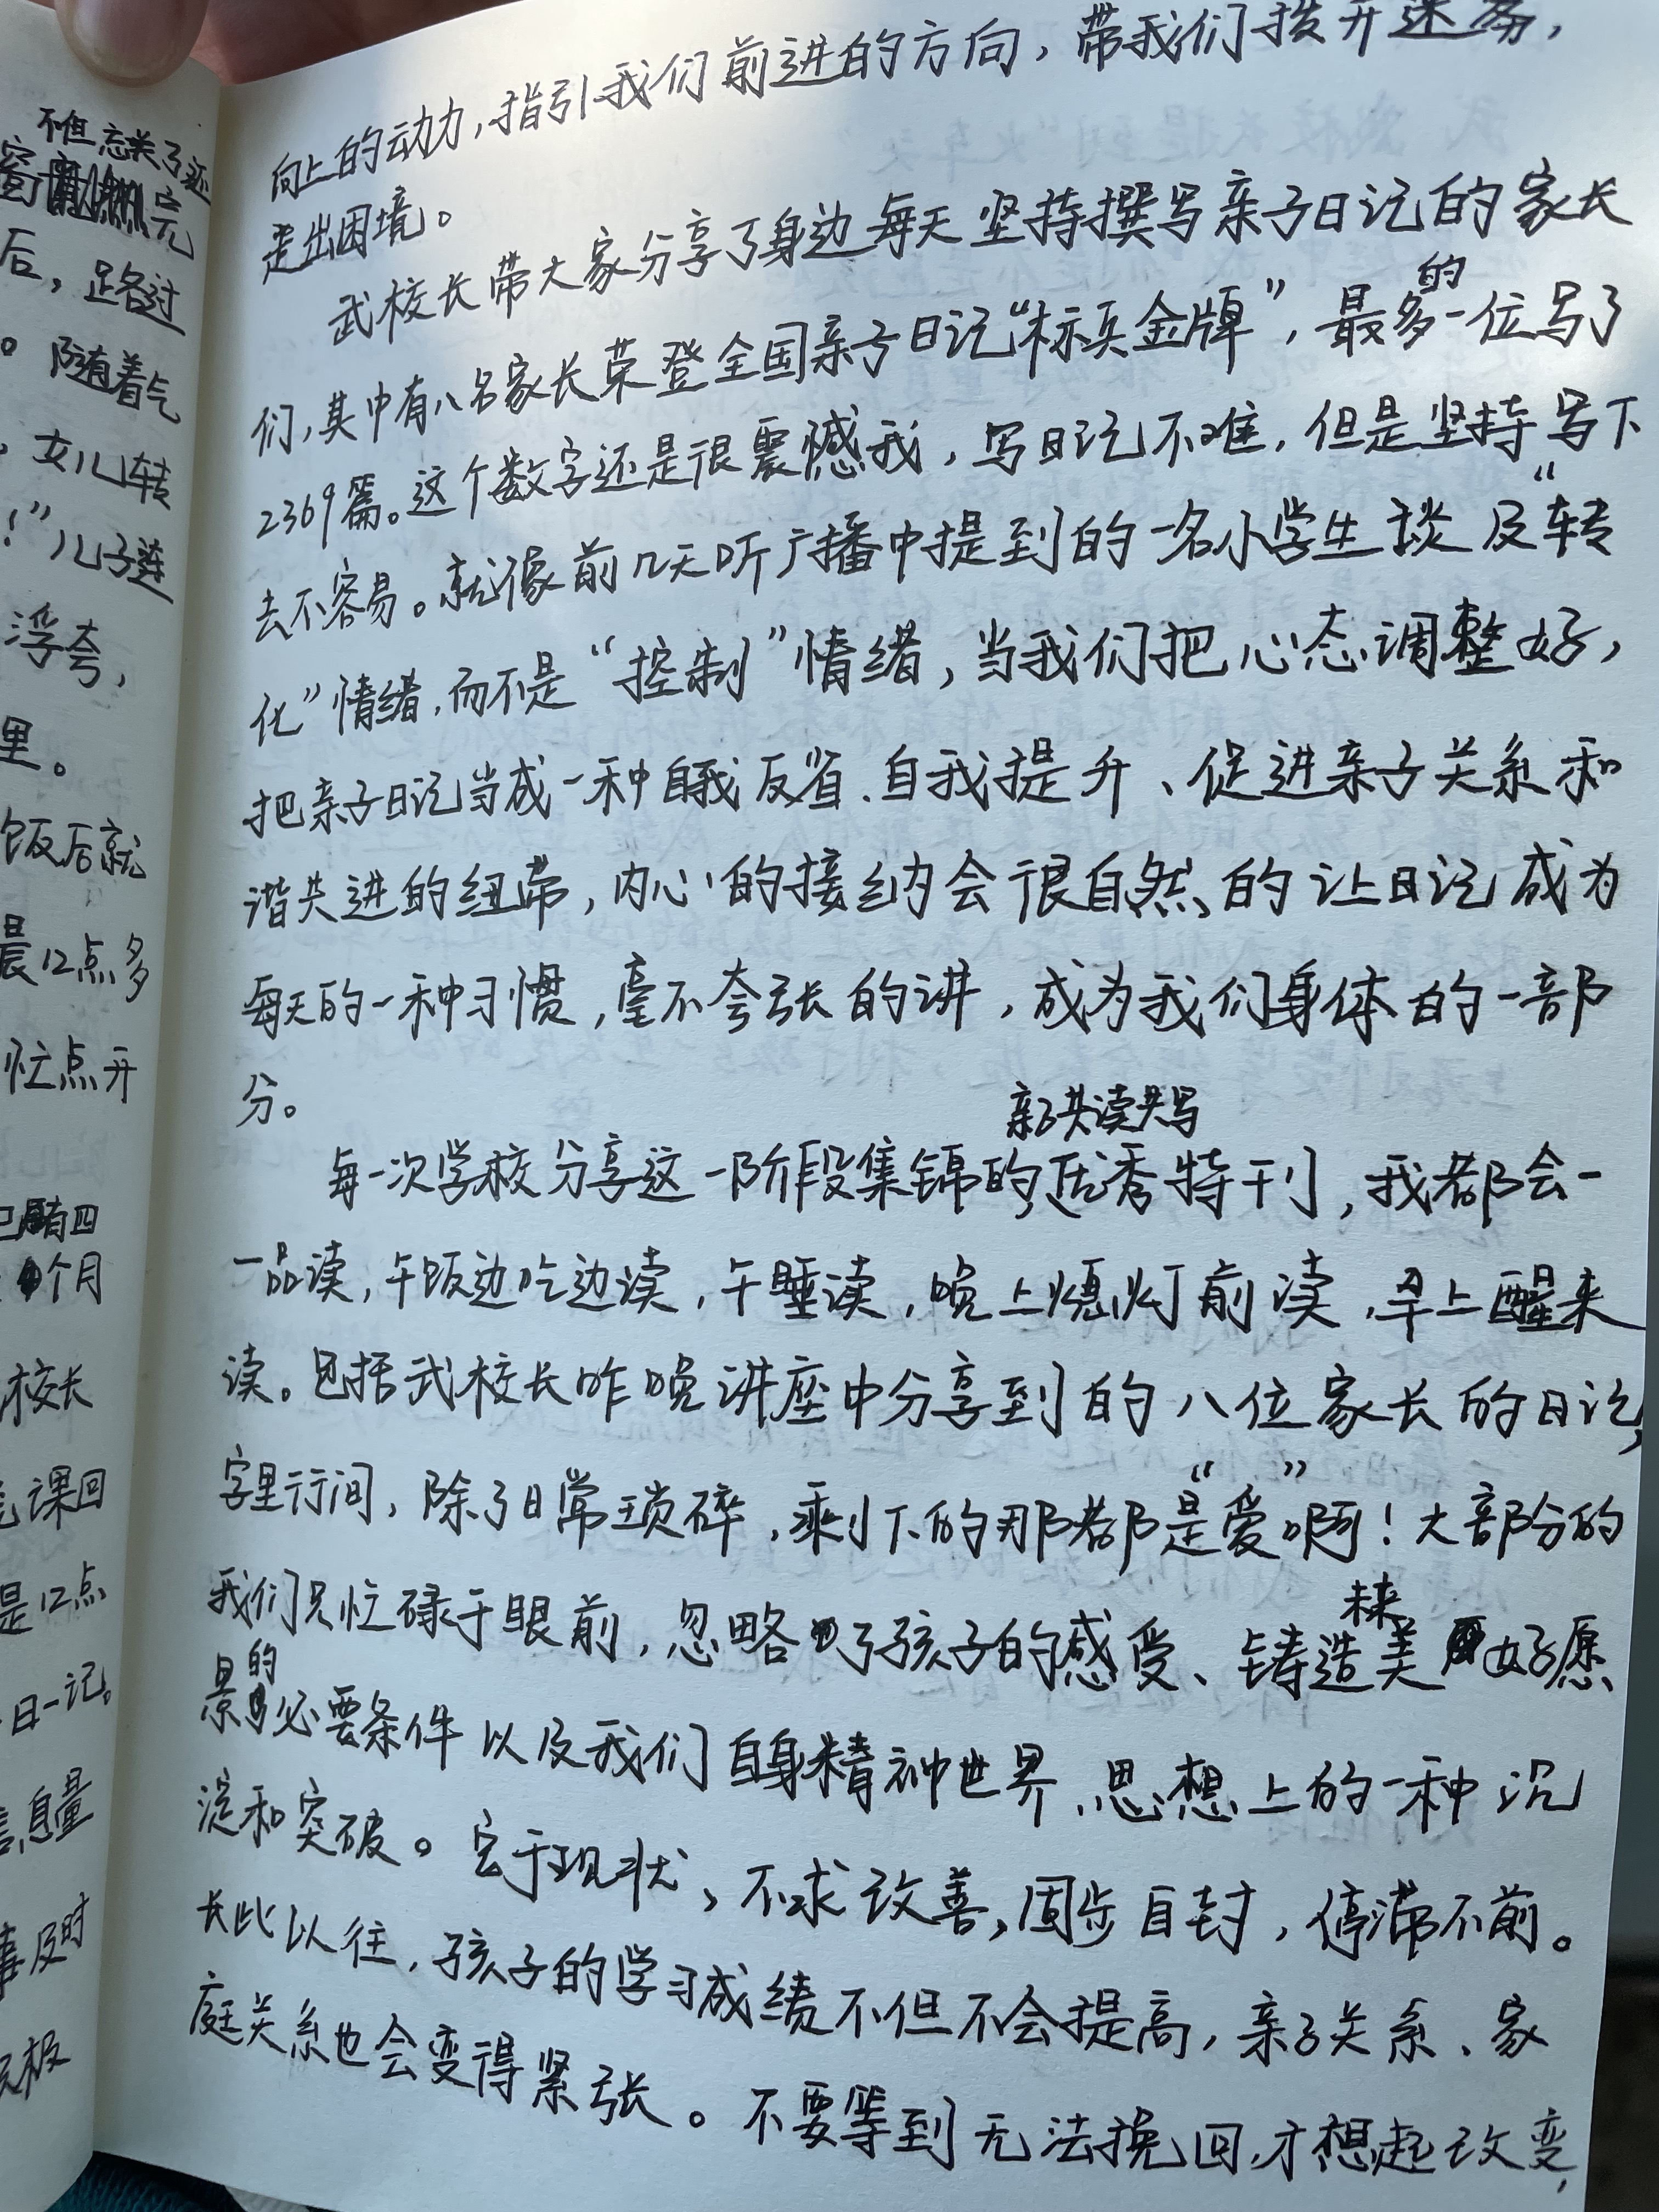 不但忘关了还
窗 完
后，路过
。随着气
，女儿转
！”儿子连
浮夸，
里。
饭后就
晨12点多
忙点开
已有四
个月
校长
课回
是12点
日一记。
信息量
事及时
积极
向上的动力，指引我们前进的方向，带我们拨开迷雾，
走出困境。
武校长带大家分享了身边每天坚持撰写亲子日记的家长
们，其中有八名家长荣登全国亲子日记“标兵金牌”，最多的一位写了
2369篇。这个数字还是很震憾我，写日记不难，但是坚持写下
去不容易。就像前几天听广播中提到的一名小学生谈及“转
化”情绪，而不是“控制”情绪，当我们把心态调整好，
把亲子日记当成一种自我反省、自我提升、促进亲子关系和
谐共进的纽带，内心的接纳会很自然的让日记成为
每天的一种习惯，毫不夸张的讲，成为我们身体的一部
分。
每一次学校分享这一阶段集锦的亲子共读共写优秀特刊，我都会一
一品读，午饭边吃边读，午睡读，晚上熄灯前读，早上醒来
读。包括武校长昨晚讲座中分享到的八位家长的日记，
字里行间，除了日常琐碎，剩下的那都是“爱”啊！大部分的
我们只忙碌于眼前，忽略了孩子的感受、铸造未来美好愿
景的必要条件以及我们自身精神世界、思想上的一种沉
淀和突破。安于现状，不求改善，固步自封，停滞不前。
长此以往，孩子的学习成绩不但不会提高，亲子关系、家
庭关系也会变得紧张。不要等到无法挽回，才想起改变，